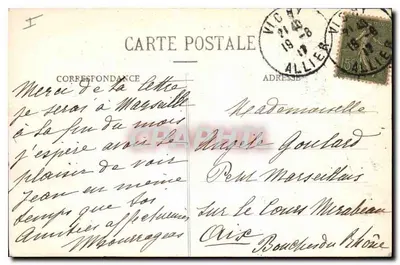 I
CARTE POSTALE
CORRESPONDANCE
ADRESSE
VICHY
21 40
19 -8
17
ALLIER
Merci de ta lettre
je serai à Marseille
à la fin du mois
j'espère avoir le
plaisir de voir
Jean en même
temps que toi
Amitiés affectueuses
Mademoiselle
Angèle Goulard
Petit Marseillais
sur le Cours Mirabeau
Aix
Bouches du Rhône